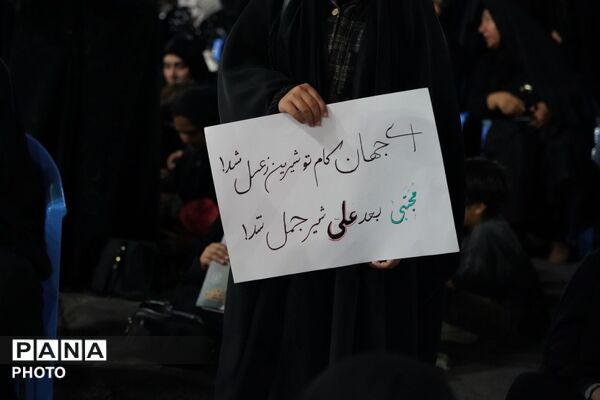 اے جهان کام تو شیرین ز عسل شد!
مجتبی بعد علی شیر جمل شد!
PANA
PHOTO